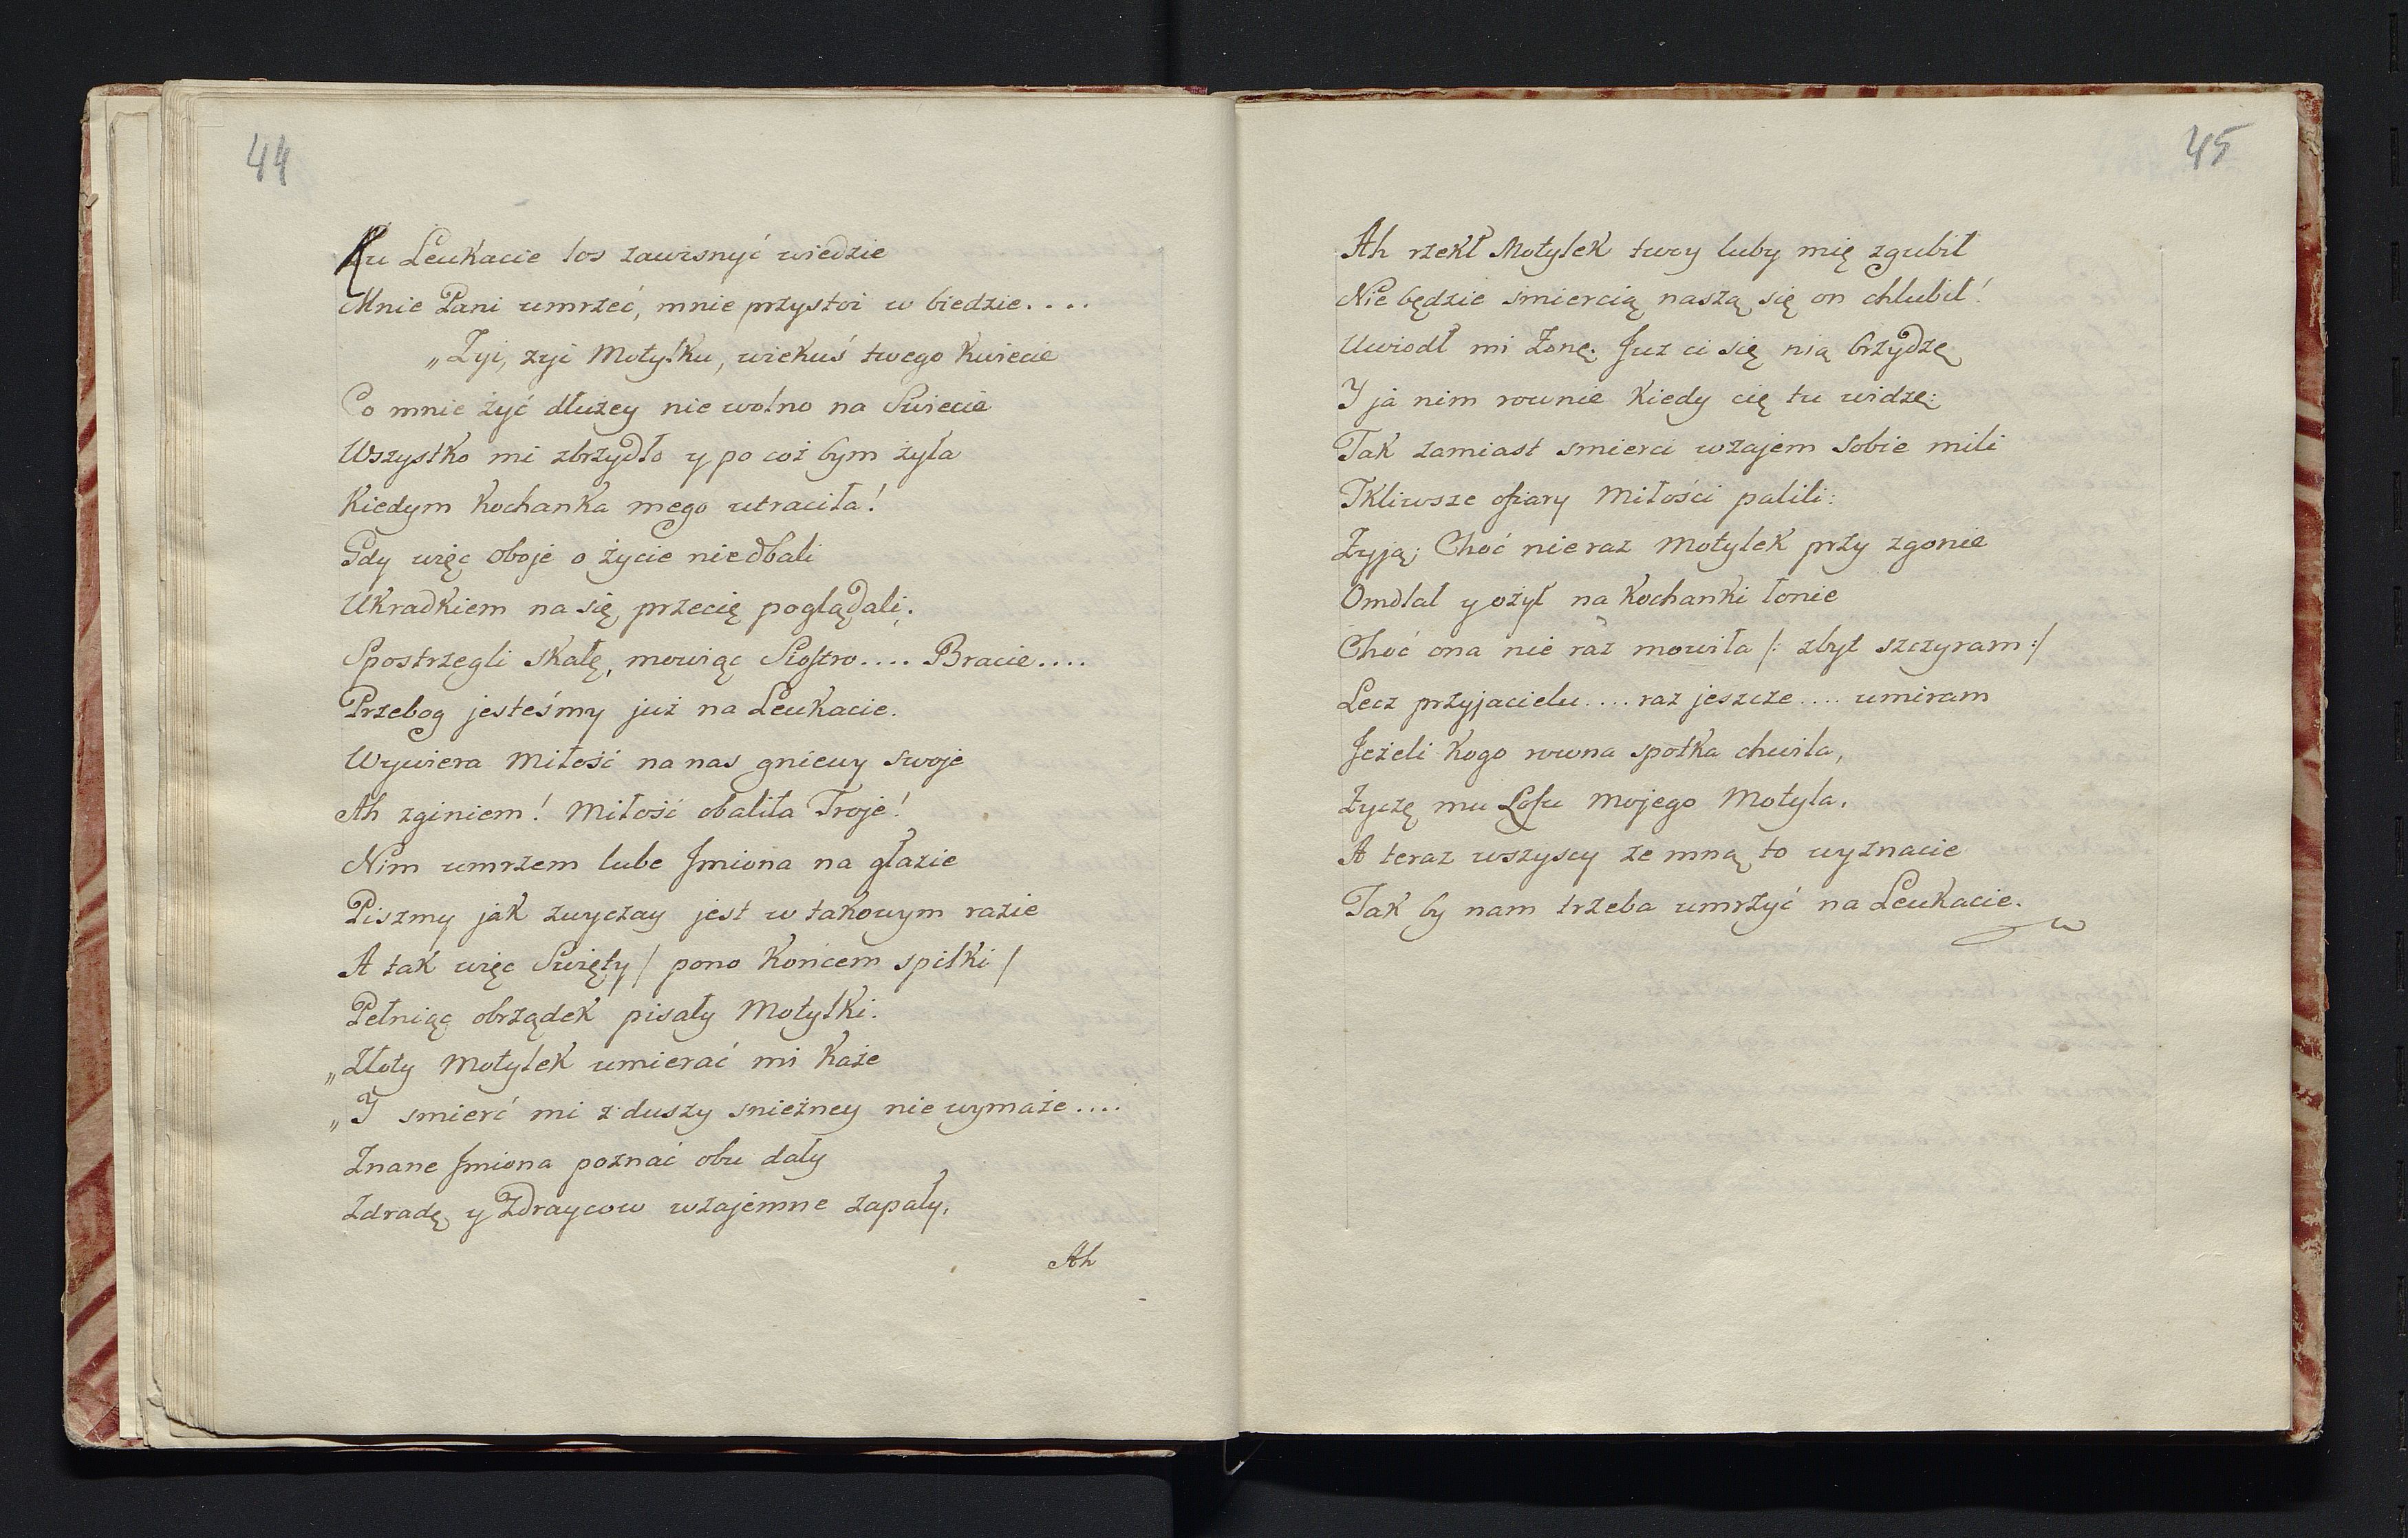 44
Ku Leukacie los zawisnyć wiedzie
Mnie Pani umrzeć, mnie przystoi w biedzie....
„Zyi, zyi Motylku, wiekuś twego kwiecie
Co mnie żyć dłużey nie wolno na Swiecie
Wszystko mi zbrzydło y po coż bym żyła
Kiedym Kochanka mego utraciła!
Gdy więc oboje o życie niedbali
Ukradkiem na się przecię poglądali;
Spostrzegli skałę, mowiąc Siostro.... Bracie....
Przebog jesteśmy już na Leukacie.
Wywiera Miłość na nas gniewy swoje
Ah zginiem! Miłość obaliła Troje!
Nim umrzem lube Jmiona na głazie
Piszmy jak zwyczay jest w takowym razie
A tak więc Swięty / pono Końcem spilki /
Pełniąc obrządek pisały Motylki.
„Złoty Motylek umierać mi Każe
„I smierć mi z duszy snieżney nie wymaże....
Znane Jmiona poznać obu dały
Zdradę y Zdraycow wzajemne zapały,
Ah
45
Ah rzekł Motylek twoy luby mię zgubił
Nie będzie smiercią naszą się on chlubił!
Uwiodł mi Zonę. Juz ci się nią brzydzę
Y ja nim rownie kiedy cię tu widzę:
Tak zamiast smierci wzajem sobie mili
Tkliwsze ofiary Miłości palili:
Zyją; Choć nie raz Motylek przy zgonie
Omdlał y ożył na Kochanki łonie
Choć ona nie raz mowiła /: zbyt szczyram :/
Lecz przyjacielu.... raz jeszcze.... umiram
Jeżeli kogo rowna spotka chwila,
Zyczę mu Losu mojego Motyla.
A teraz wszyscy ze mną to wyznacie
Tak by nam trzeba umrzyć na Leukacie.